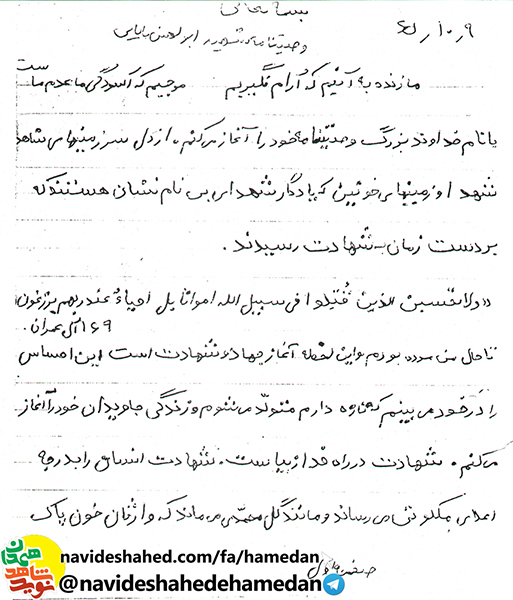 بسمه تعالی
۶۵/۱۰/۹
وصیتنامه شهید ابوالحسن بابایی
ما زنده به آنیم که آرام نگیریم موجیم که آسودگی ما عدم ماست
با نام خداوند بزرگ وصیتنامه خود را آغاز میکنم، از دل سرزمینهای شاهد
شهدا و زمینهای خونین که یادگار شهدای بی نام نشان هستند که
بر دست زمان به شهادت رسیدند.
«ولا تحسبن الذین قُتِلوا فی سبیل الله امواتا بل احیاءُ عند ربهم یرزقون»
۱۶۹ آل عمران.
تا حال من مرده بودم واین لحظه آغاز جهاد و شهادت است این احساس
را در خود می بینم که تازه دارم متولد می شوم و زندگی جاویدان خود را آغاز
می کنم. شهادت در راه خدا زیباست. شهادت انسان را به درجه
اعلای ملکوتی می رساند و مانند گل محمدی می ماند که از آن خون پاک
صفحه اول
navideshahed.com/fa/hamedan
@navideshahedehamedan
نوید شاهد همدان